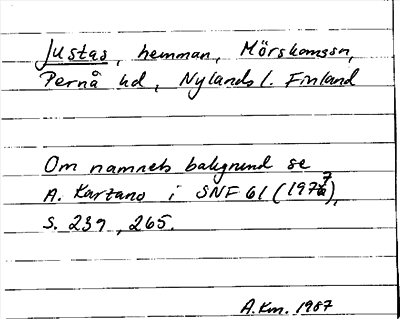 Justas, hemman, Mörskomssn,
Pernå hd, Nylands l. Finland
Om namnets bakgrund se
A. Karzano i SNF 61 (1977),
s. 239, 265.
A.Km. 1987